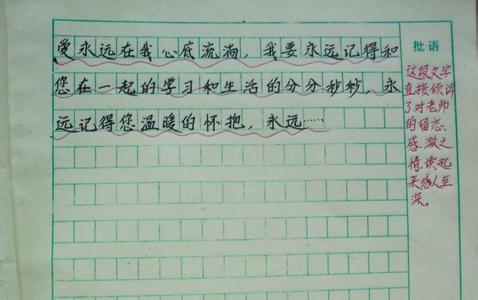 爱永远在我心底流淌，我要永远记得和
您在一起的学习和生活的分分秒秒，永
远记得您温暖的怀抱，永远……
批语
这段文字
直接倾诉
了对老师
的留恋、
感激之
情，读起
来感人至
深。